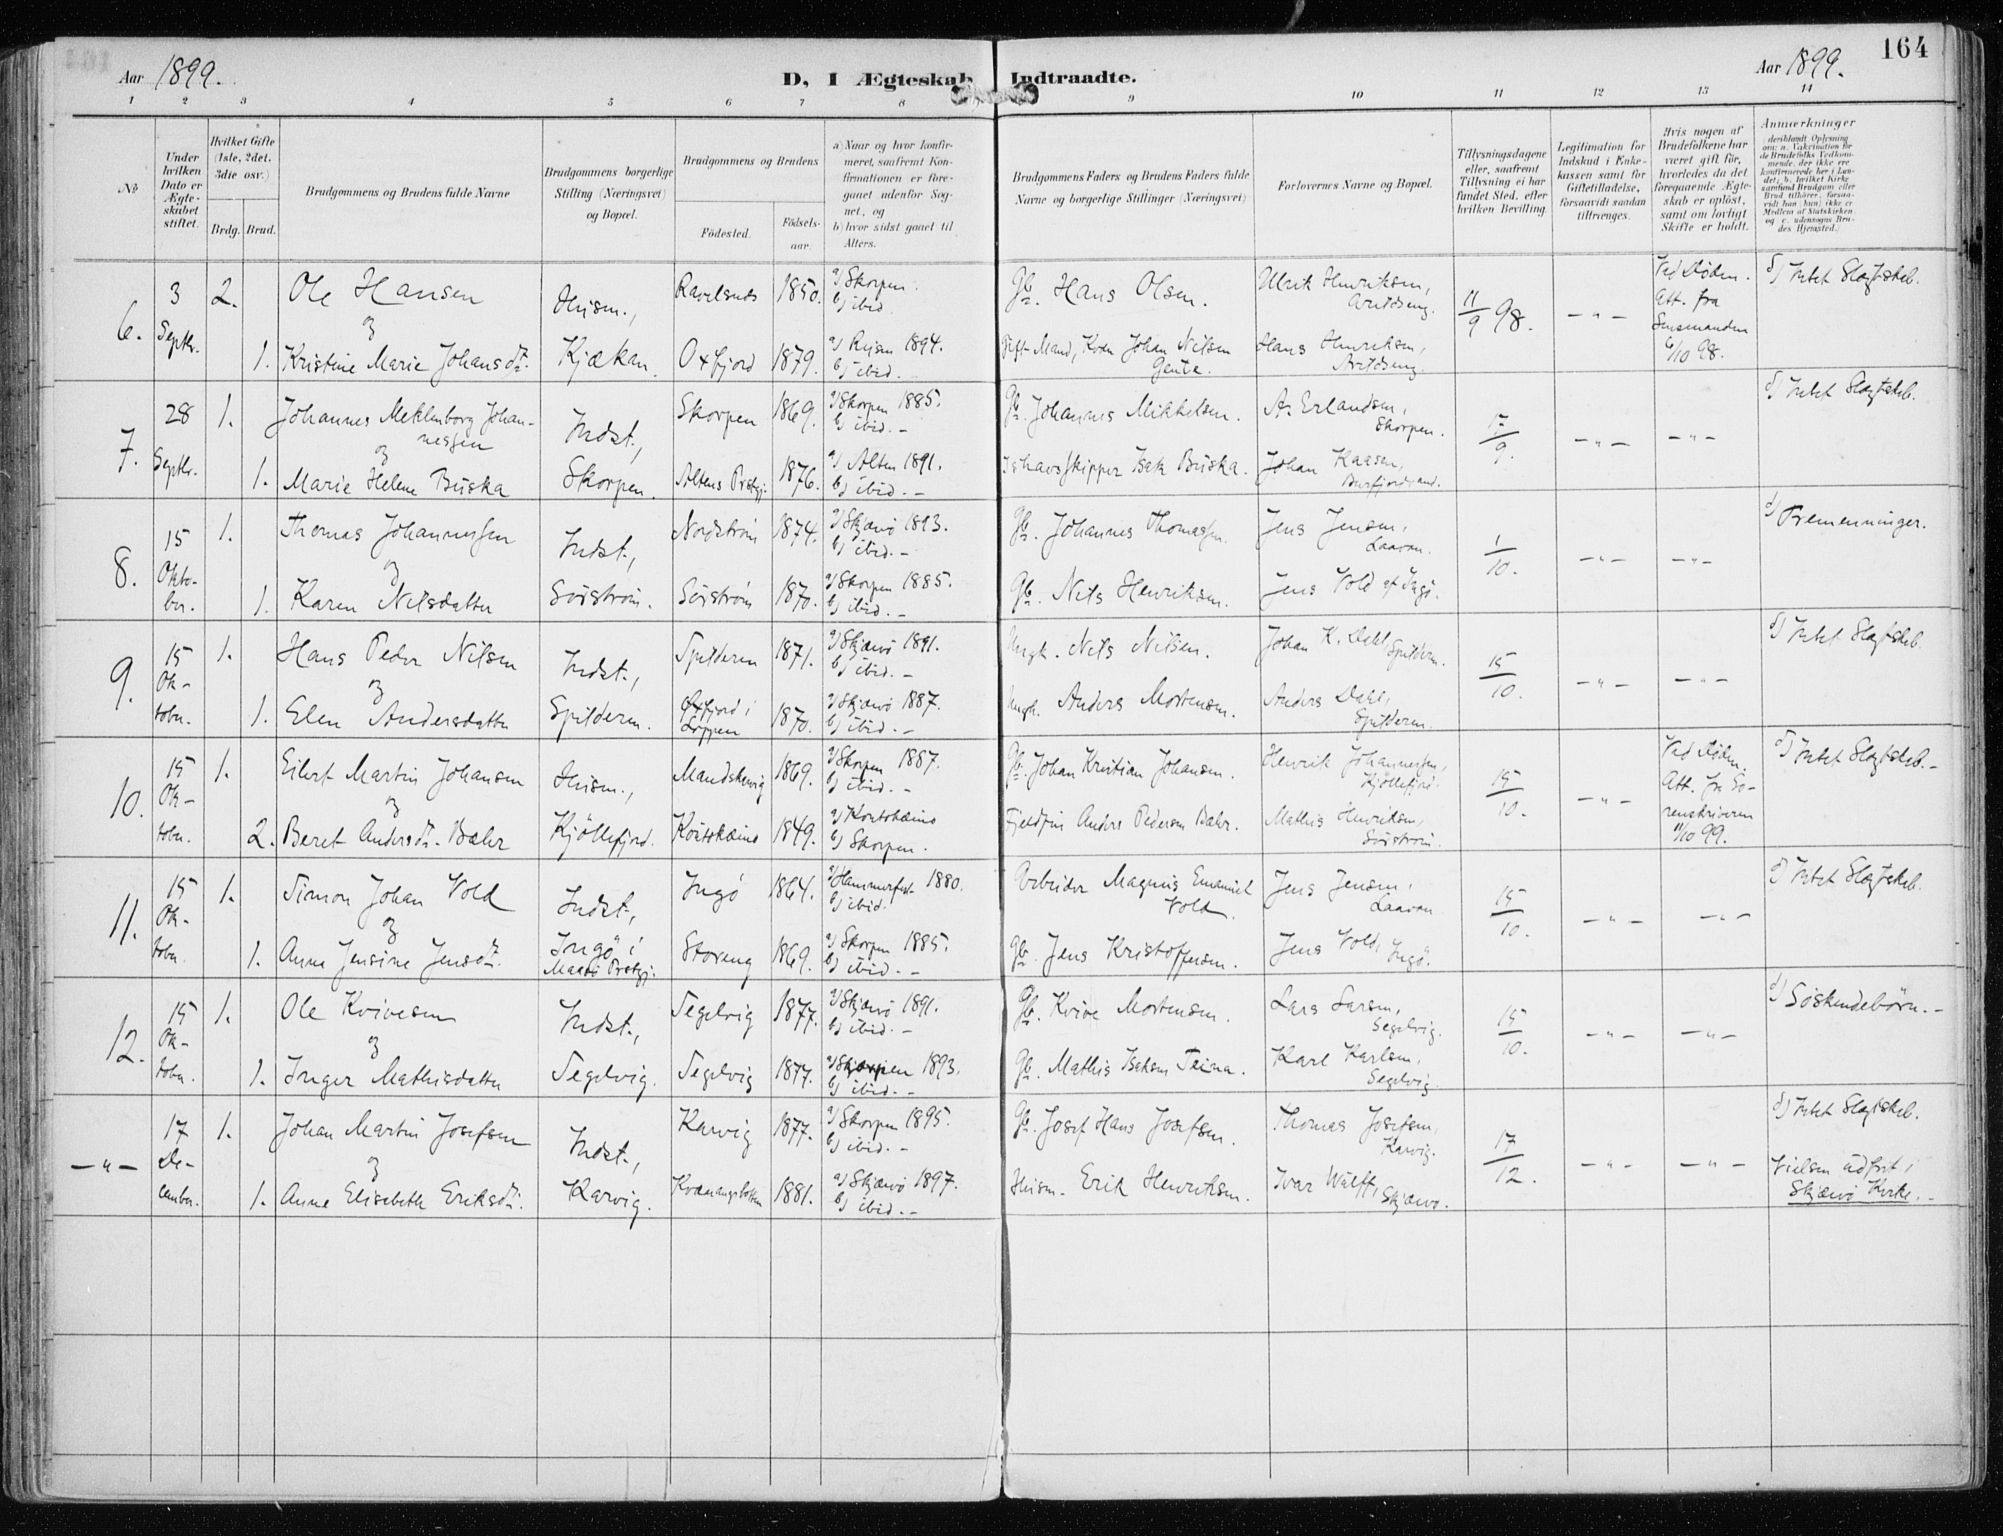 164
Aar 1899.
D, I Ægteskab Indtraadte.
Aar 1899.
1 2 3 4 5 6 7 8 9 10 11 12 13 14
No
Under hvilken Dato er Ægteskabet stiftet.
Hvilket Gifte (1ste, 2det. 3die osv.)
Brdg. Brud.
Brudgommens og Brudens fulde Navne
Brudgommens borgerlige Stilling (Næringsvei) og Bopæl.
Brudgommens og Brudens
Fødested.
Fødsels-aar.
a) Naar og hvor konfirmeret, saafremt Konfirmationen er foregaaet udenfor Sognet, og
b) hvor sidst gaaet til Alters.
Brudgommens Faders og Brudens Faders fulde Navne og borgerlige Stillinger (Næringsvei)
Forlovernes Navne og Bopæl.
Tillysningsdagene eller, saafremt Tillysning ei har fundet Sted, efter hvilken Bevilling.
Legitimation for Indskud i Enkekassen samt for Giftetilladelse, forsaavidt saadan tiltrænges.
Hvis nogen af Brudefolkene har været gift før, hvorledes da det foregaaende Ægteskab er opløst, samt om lovligt Skifte er holdt.
Anmærkninger
6. 3 Septbr. 2. Ole Hansen Husm., 1850. a) Skorpen. b) ibid. Gb. Hans Olsen. Ulrik Henriksen, 11/9 98. – " – Ved Døden. d) Intet Slægtskab.
og Att. fra
1. Kristine Marie Johansdt. Kjækan. Oxfjord 1879. 1894. b) ibid. Gift Mand, Kvæn Johan Nilsen Hans Henriksen, 6/10 98.
7. 28 Septbr. 1. Johannes Meklenborg Johannessen Indst., Skorpen 1869. a) Skorpen 1885. b) ibid. – Gb. Johannes Mikkelsen. A. Erlandsen, Skorpen. 17/9. – " – – " – d) Intet Slægtskab.
og
1. Marie Helene Buska Skorpen. Altens Prstgj. 1876. a) Alten 1891. b) ibid. – Ishavsskipper Isak Buska. Johan Kaasen,
8. 15 Oktober. 1. Thomas Johannessen Indst., Nordstrøm 1874. a) Skjærvø b) ibid. – Gb. Johannes Thomassen. Jens Jensen, 1/10. – " – – " – d) Tremenninger.
og
1. Karen Nilsdatter Sørstrøm. Sørstrøm 1870. a) Skorpen 1885. b) ibid. – Gb. Nils Henriksen. Jens Vold af Ingø.
9. 15 Oktober. 1. Hans Peder Nilsen Indst., Spilderen 1871. a) Skjærvø 1891. b) ibid. – Ungk. Nils Nilsen. Johan K. Dahl, Spilderen. 15/10. – " – – " – d) Intet Slægtskab.
og
1. Elen Andersdatter Spilderen. Øxfjord i Loppen 1870. a) Skjærvø 1887. b) ibid. – Ungk. Anders Mortensen. Anders Dahl, Spilderen.
10. 15 Oktober. 1. Eilert Martin Johansen Husm., 1869. a) Skorpen 1887. b) ibid. – Gb. Johan Kristian Johansen. Henrik Johannessen, Kjøllefjord. 15/10. – " – Ved Døden. d) Intet Slægtskab. –
og Att. fra Sorenskriveren
2. Beret Andersdt. Bæhr Kjøllefjord. Koutokæino 1849. a) Koutokæino b) Skorpen. Fjeldfin Anders Pedersen Bæhr. Mathis Henriksen, Sørstrøm. 11/10 99.
11. 15 Oktober. 1. Simon Johan Vold Indst., Ingø 1864. a) Hammerfest 1880. b) ibid. Arbeider Magnus Emanuel Vold. Jens Jensen, 15/10. – " – – " – d) Intet Slægtskab.
og
1. Anne Jensine Jensdt. Ingø i Maasø Prstgj. Storeng 1869. a) Skorpen 1885. b) ibid. – Gb. Jens Kristoffersen. Jens Vold, Ingø.
12. 15 Oktober. 1. Ole Kvivesen Indst., Segelvig 1877. a) Skjærvø 1891. b) ibid. – Gb. Kvive Mortensen. Lars Larsen, Segelvig. 15/10. – " – – " – d) Søskendebørn. –
og
1. Inger Mathisdatter Segelvig. Segelvig 1877. a) Skorpen 1893. b) ibid. – Gb. Mathis Isaksen Karl Karlsen, Segelvig.
– " – 17 December. 1. Johan Martin Josefsen Indst., Karvig 1877. a) Skorpen 1895. b) ibid. – Gb. Josef Hans Josefsen. Thomas Josefsen, Karvig. 17/12. – " – – " – d) Intet Slægtskab.
og
1. Anne Elisabeth Eriksdt. Karvig. Kvænangsbotten 1881. a) Skjærvø 1897. b) ibid. – Husm. Erik Henriksen. Ivar Wulff, Skjærvø. Vielsen udført i Skjærvø Kirke. –